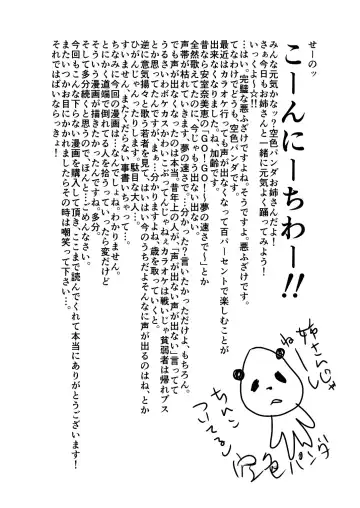 せーのッ
こーんにーちわー!!
みんな元気かなッ?空色パンダお姉さんだよ!
さぁ今日もお姉さんと一緒に元気よく踊ってみよう!
いっくよ〜☆!!
…はい。完璧な悪ふざけですよね。そうですよ。悪ふざけです。
てなわけでどうも、空色パンダです。
最近はカラオケ行っても声が出なくなって百パーセントで楽しむことが
出来なくなりました。ね。加齢です。
昔なら安室奈美恵の「GO!GO!夢の速さで〜」とか
全然歌えてたのに、今じゃもう出ない出ない。
声帯が枯れています。夢の速さで枯れ…たかった…?言いたかっただけよ、もちろん。
でも声が出なくなったのは本当。昔年上の人が、「声が出ない声が出ない」言ってて
うるさいわボケカスがしばいぶってんじゃねぇカラオケは戦いじゃ貧弱者は帰れブス
とか思ってたんですが、まぁ…分かりますよね、歳を取っていくと。
逆に意気揚々と歌う若者を見て、はいはい今のうちだよそんなに声が出るのはね、とか
ひがんだりします。駄目な大人…。
すいません、まただらない事書いちゃって…。
ちなみに今回の漫画は…なんでしょね。わかりません。
とにかく道端で倒れてる人を拾っていったら変だけど
そういう漫画が描きたかったんですね、多分。
そして多分続くと思うので、ほんとごめんなさい。
今回もこんな下らない漫画を購入して頂き、ここまで読んでくれて本当にありがとうございます!
またいつかお目にかかれましたらその時は嘲笑って下さい…。
それではばいならっきょ!
姉さんじゃ
ね
ちんこ
ついてるし
空色パンダ